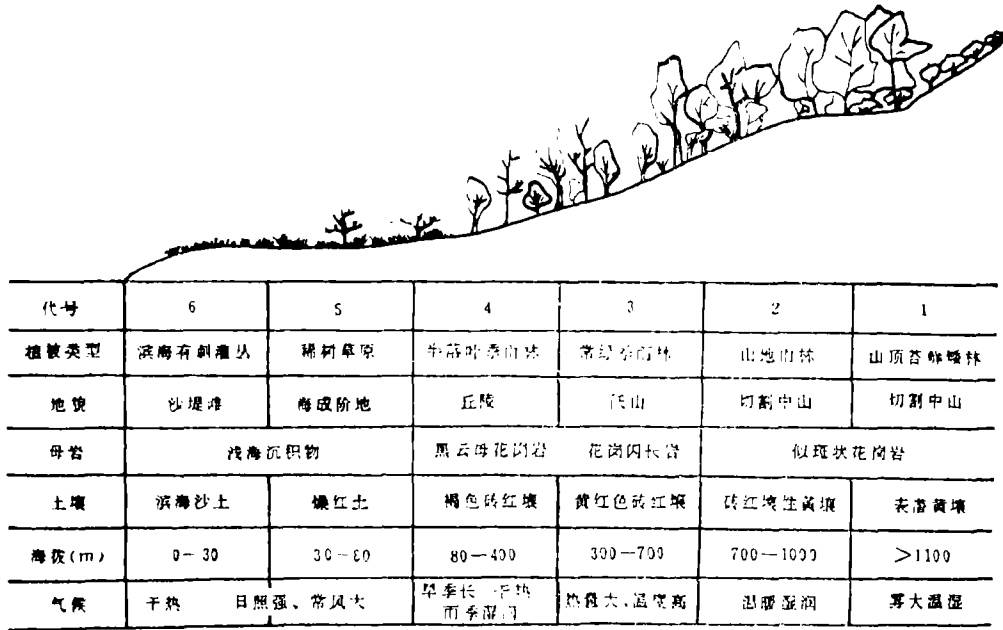 代号 6 5 4 3 2 1
植被类型 滨海有刺灌丛 稀树草原 半落叶季雨林 常绿季雨林 山地雨林 山顶苔藓矮林
地貌 沙堤滩 海成阶地 丘陵 低山 切割中山 切割中山
母岩 浅海沉积物 黑云母花岗岩 花岗闪长岩 似斑状花岗岩
土壤 滨海沙土 燥红土 褐色砖红壤 黄红色砖红壤 砖红壤性黄壤 表潜黄壤
海拔(m) 0-30 30-80 80-400 300-700 700-1000 >1100
气候 干热 日照强、常风大 旱季长 干热 热量大、温度高 温暖湿润 雾大温湿
雨季湿润